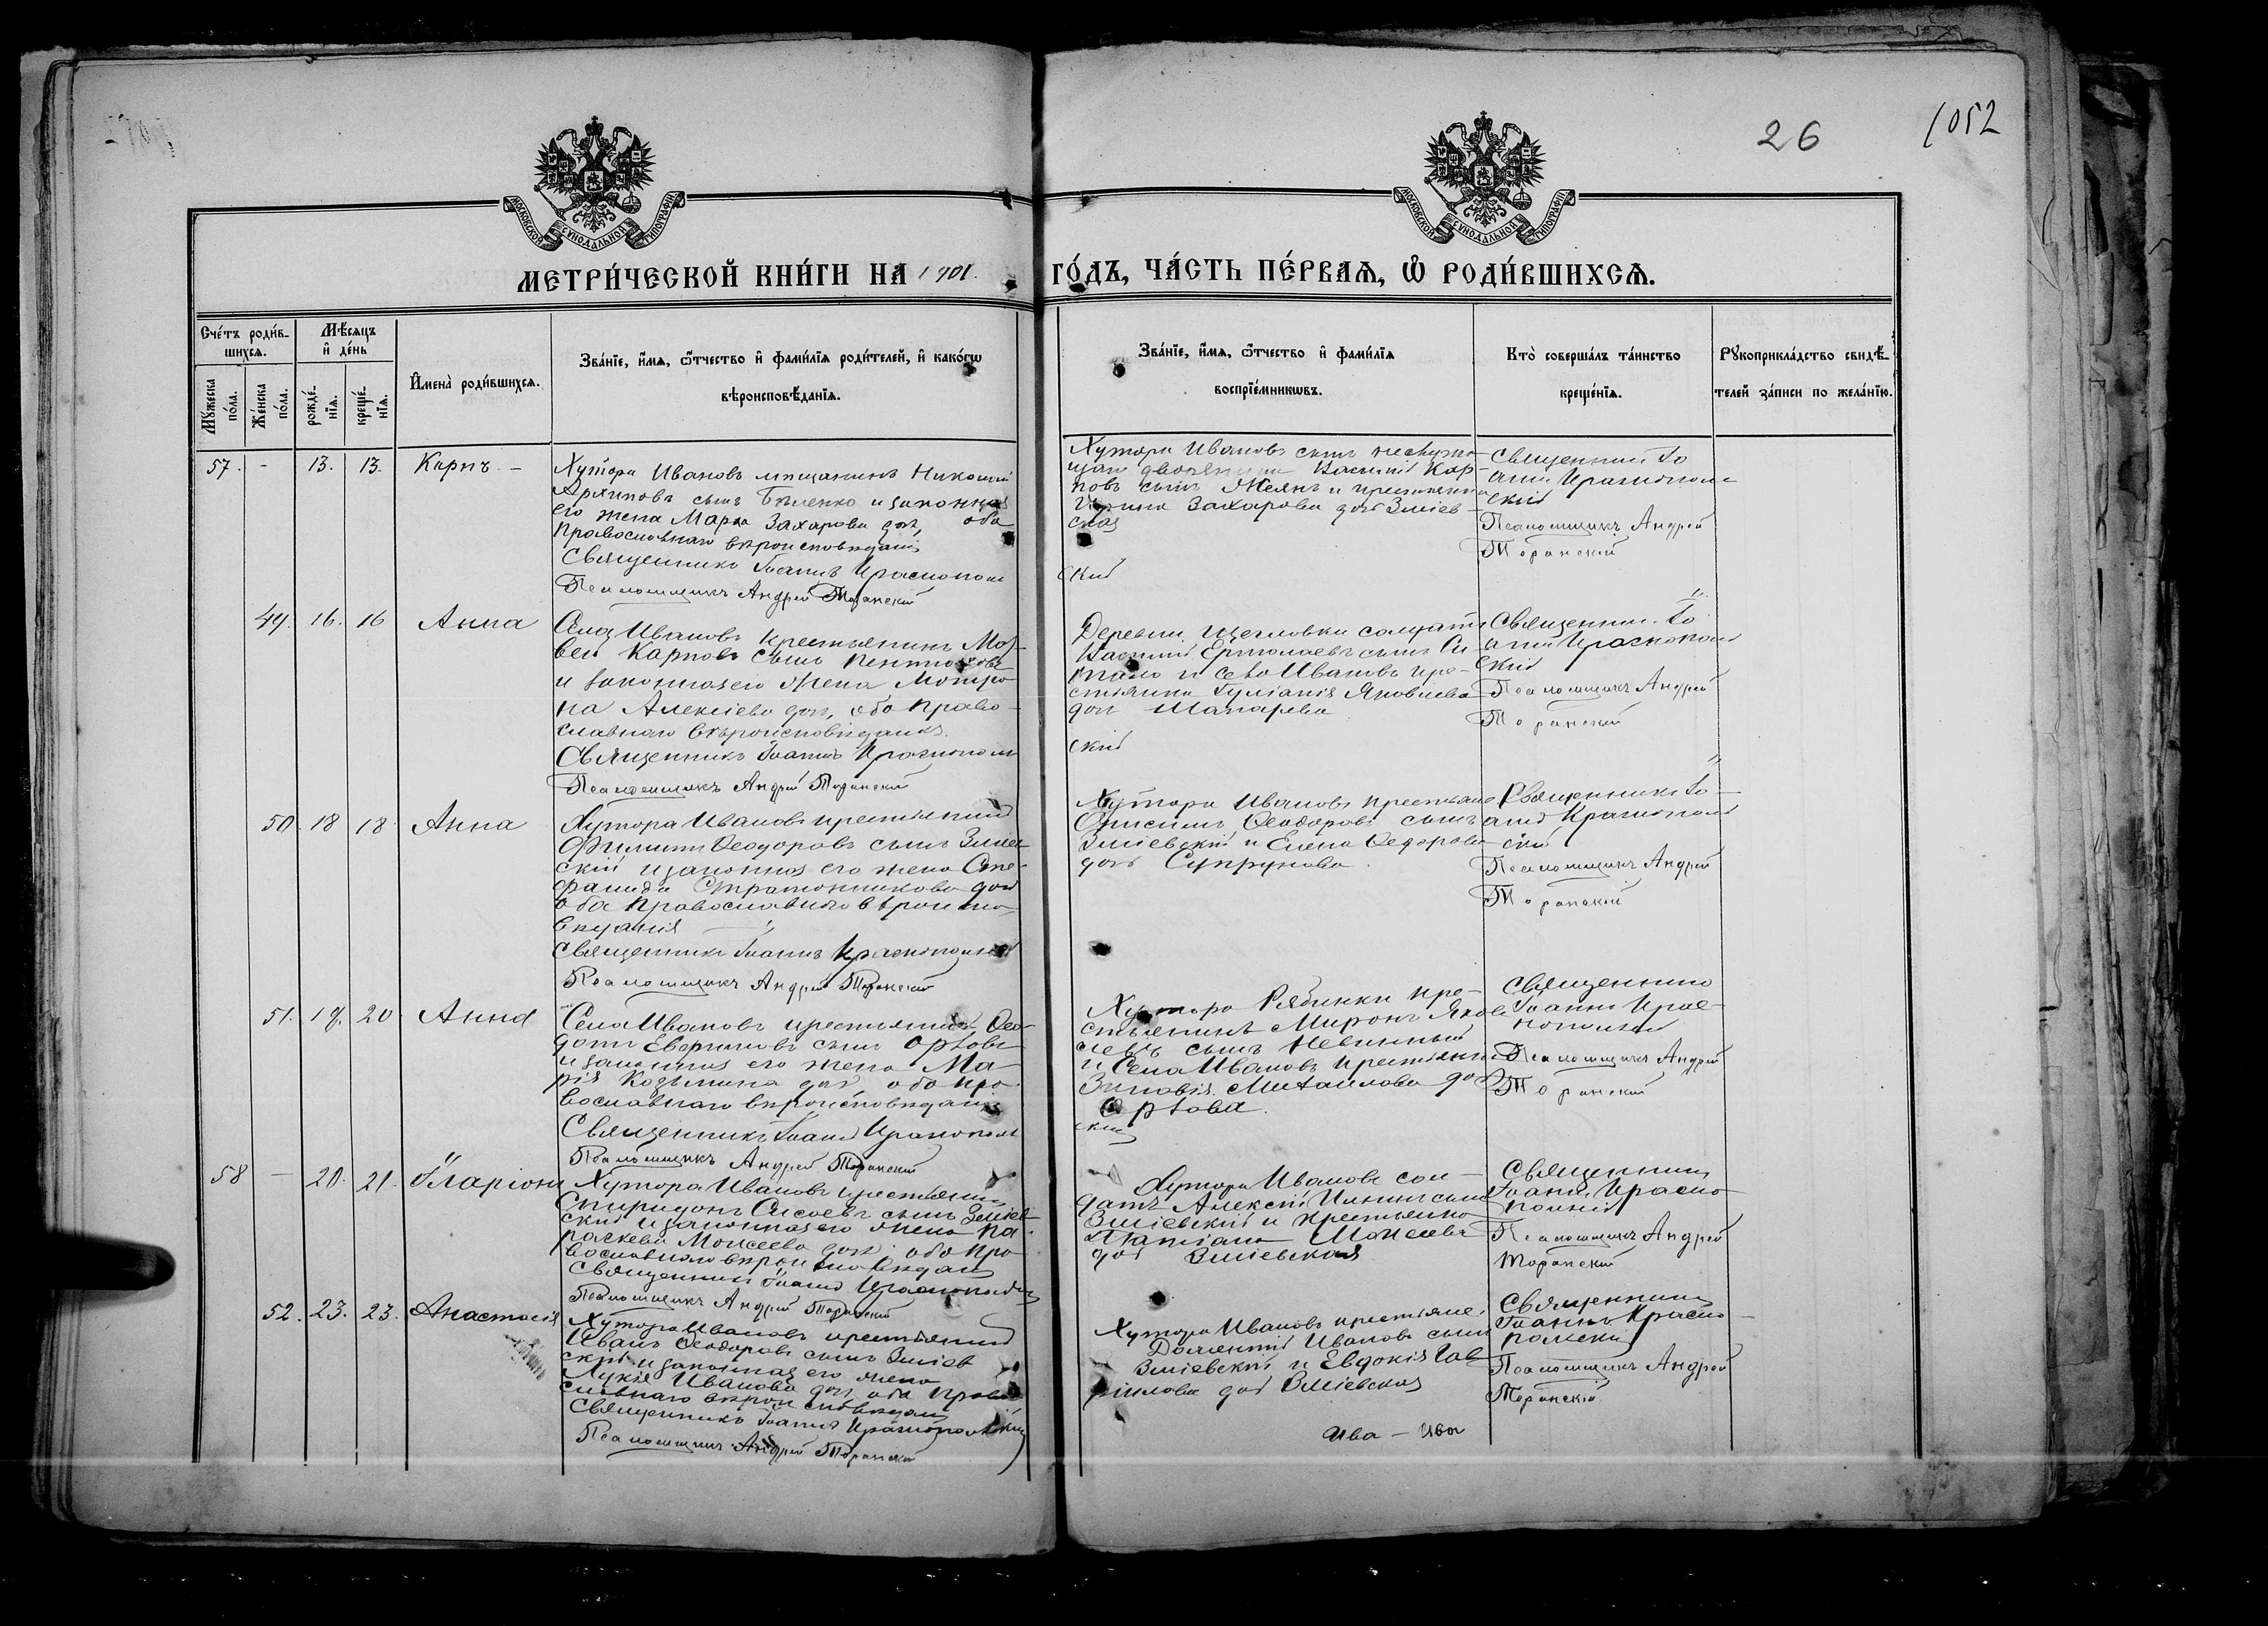 26
1052
МОСКОВСКОЙ СУНОДАЛЬНОЙ ТИПОГРАФІИ
МОСКОВСКОЙ СУНОДАЛЬНОЙ ТИПОГРАФІИ
МЕТРИ́ЧЕСКОЙ КНИ́ГИ НА 1901 ГО́ДЪ, ЧА́СТЬ ПЕ́РВАѦ, Ѽ РОДИ́ВШИХСѦ.
Сче́тъ роди́в-
шихсѧ.
Мѣ́сѧцъ
и҆ де́нь
Мꙋ́жеска
по́ла.
Же́нска
по́ла.
рожде́-
нїѧ.
креще́-
нїѧ.
И҆мена̀ роди́вшихсѧ.
Зва́нїе, и҆́мѧ, ѻ҆́тчество и҆ фами́лїѧ роди́телей, и҆ како́гѡ
вѣроисповѣ́данїѧ.
Зва́нїе, и҆́мѧ, ѻ҆́тчество и҆ фами́лїѧ
воспрїе́мникѡвъ.
Кто̀ соверша́лъ та́инство
креще́нїѧ.
Рꙋкоприкла́дство свидѣ́-
телей за́писи по жела́нїю.
57. - 13. 13. Карпъ. -
Хутора Ивановъ мѣщанинъ Николай
Архиповъ сынъ Бѣленко и законная
его жена Марѳа Захарова доч, оба
православнаго вѣроисповѣданія
Священникъ Іоаннъ Краснополь
Псаломщикъ Андрей Торанскій
Хутора Ивановъ сынъ
дворянина Василій Кар-
повъ сынъ и крестьянка
Ирина Захарова доч Зміев-
ская
скій
Священникъ Іо
аннъ Краснополь
скій
Псаломщикъ Андрей
Торанскій
49. 16. 16 Анна
Села Ивановъ крестьянинъ Мат-
вей Карповъ сынъ
и законная его жена Матро-
на Алексіева доч, оба право-
славнаго вѣроисповѣданія.
Священникъ Іоаннъ Краснополь
Псаломщикъ Андрей Торанскій
Деревни Щегловки солдатъ
Василій Ермолаевъ сынъ
и села Ивановъ кре-
стьянка Іуліанія Яковлева
доч Шапарева
скій
Священникъ Іо
аннъ Краснополь
скій
Псаломщикъ Андрей
Торанскій
50. 18 18 Анна
Хутора Ивановъ крестьянинъ
Филиппъ Ѳеодоровъ сынъ Зміев
скій и законная его жена Сте-
фанида Стратонникова доч
оба православнаго вѣроиспо-
вѣданія
Священникъ Іоаннъ Краснопольскій
Псаломщикъ Андрей Торанскій
Хутора Ивановъ крестьяне
Онисимъ Ѳеодоровъ сынъ
Зміевскій и Елена Ѳедорова
доч Супрунова.
Священникъ Іо-
аннъ Краснополь
скій
Псаломщикъ Андрей
Торанскій
51. 19. 20 Анна
Села Ивановъ крестьянинъ Ѳео-
дотъ Евфимовъ сынъ Орѣховъ
и законная его жена Ма-
рія Козьмина доч оба пра-
вославнаго вѣроисповѣданія
Священникъ Іоаннъ Краснополь
Псаломщикъ Андрей Торанскій
Хутора Рябинки кре-
стьянинъ Миронъ Яков-
левъ сынъ Невинный
и Села Ивановъ крестьянка
Зиновія Михаилова доч
Орѣхова.
скій
Священникъ
Іоаннъ Крас-
нопольскій
Псаломщикъ Андрей
Торанскій
58 - 20. 21. Иларіонъ
Хутора Ивановъ крестьянинъ
Спиридонъ Сисоевъ сынъ Зміев-
скій и законная его жена Па-
раскева Моисеева доч оба пра-
вославнаго вѣроисповѣданія
Священникъ Іоаннъ Краснопольскій
Псаломщикъ Андрей Торанскій
Хутора Ивановъ сол-
датъ Алексій Ильинъ сынъ
Зміевскій и крестьянка
Татіана Моисеева
доч Зміевская
Священникъ
Іоаннъ Красно-
польскій
Псаломщикъ Андрей
Торанскій
52. 23. 23. Анастасія
Хутора Ивановъ крестьянинъ
Иванъ Ѳеодоровъ сынъ Зміев
скій и законная его жена
Лукія Иванова доч оба право-
славнаго вѣроисповѣданія
Священникъ Іоаннъ Краснопольскій
Псаломщикъ Андрей Торанскій
Хутора Ивановъ крестьяне
Дометій Ивановъ сынъ
Зміевскій и Евдокія Гав-
рілова доч Зміевская
Ива - Ива
Священникъ
Іоаннъ Красно-
польскій
Псаломщикъ Андрей
Торанскій